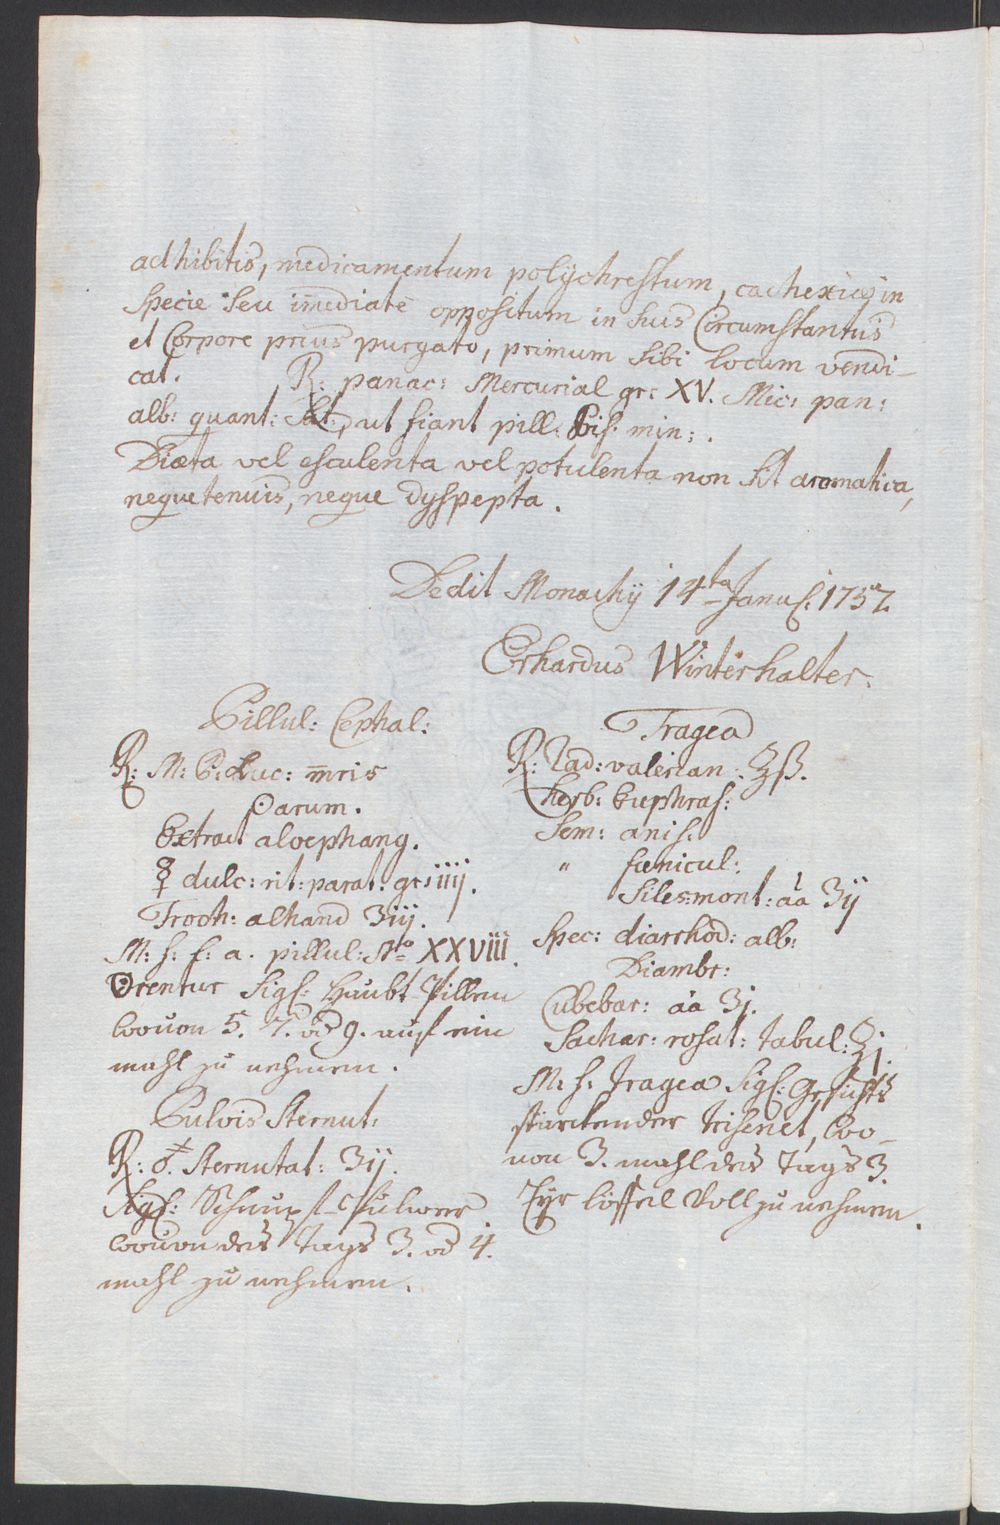 adhibitis, medicamentum polÿchrestum, cachexiæ in
Specie Seu im̄ediatè oppositum in suis Circumstantiis
et Corpore prius purgato, primum sibi locum vendi-
cat. R: panac: Mercurial gr: XV. Mic: pan:
alb: quant: sat:, ut fiant pill: Pis. min:.
Diæta vel esculenta vel potulenta non sit aromatica,
neque tenuis, neque dyspepta.
Dedit Monachÿ 14ta Janu: 1732
Erhardus Winterhalter.
Pillul: Cephal:
R: M: P: Luc: m̄ris
Parum.
Extract aloephang.
☿ dulc: rit: parat: gr: iiij.
Troch: alhand ʒiij.
M: f: f: a. pillul: No XXVIII.
Orentur Sigf: Haubt Pillen
wouon 5. 7. od 9. auf ein
mahl zu nehmen.
Pulvis Sternut:
R: Sternutat: ʒij.
Sigf: Schnupf Pulver
wouon des Tags 3. od 4.
mahl zu nehmen.
Tragea
R: Rad: valerian: ℥ß.
Herb: Euphras:
Sem: anis:
" fœnicul:
Siles: mont: āā ʒij
Spec: diarrhod: alb:
Diambr:
Cubebar: āā ʒj.
Sachar: rosat: tabul: ℥j.
M: f. Tragea Sigf: Gesichts
starckender Trisenet, wo-
uon 3. mahl des Tags 3.
Eyr löffel Voll zu nehmen.